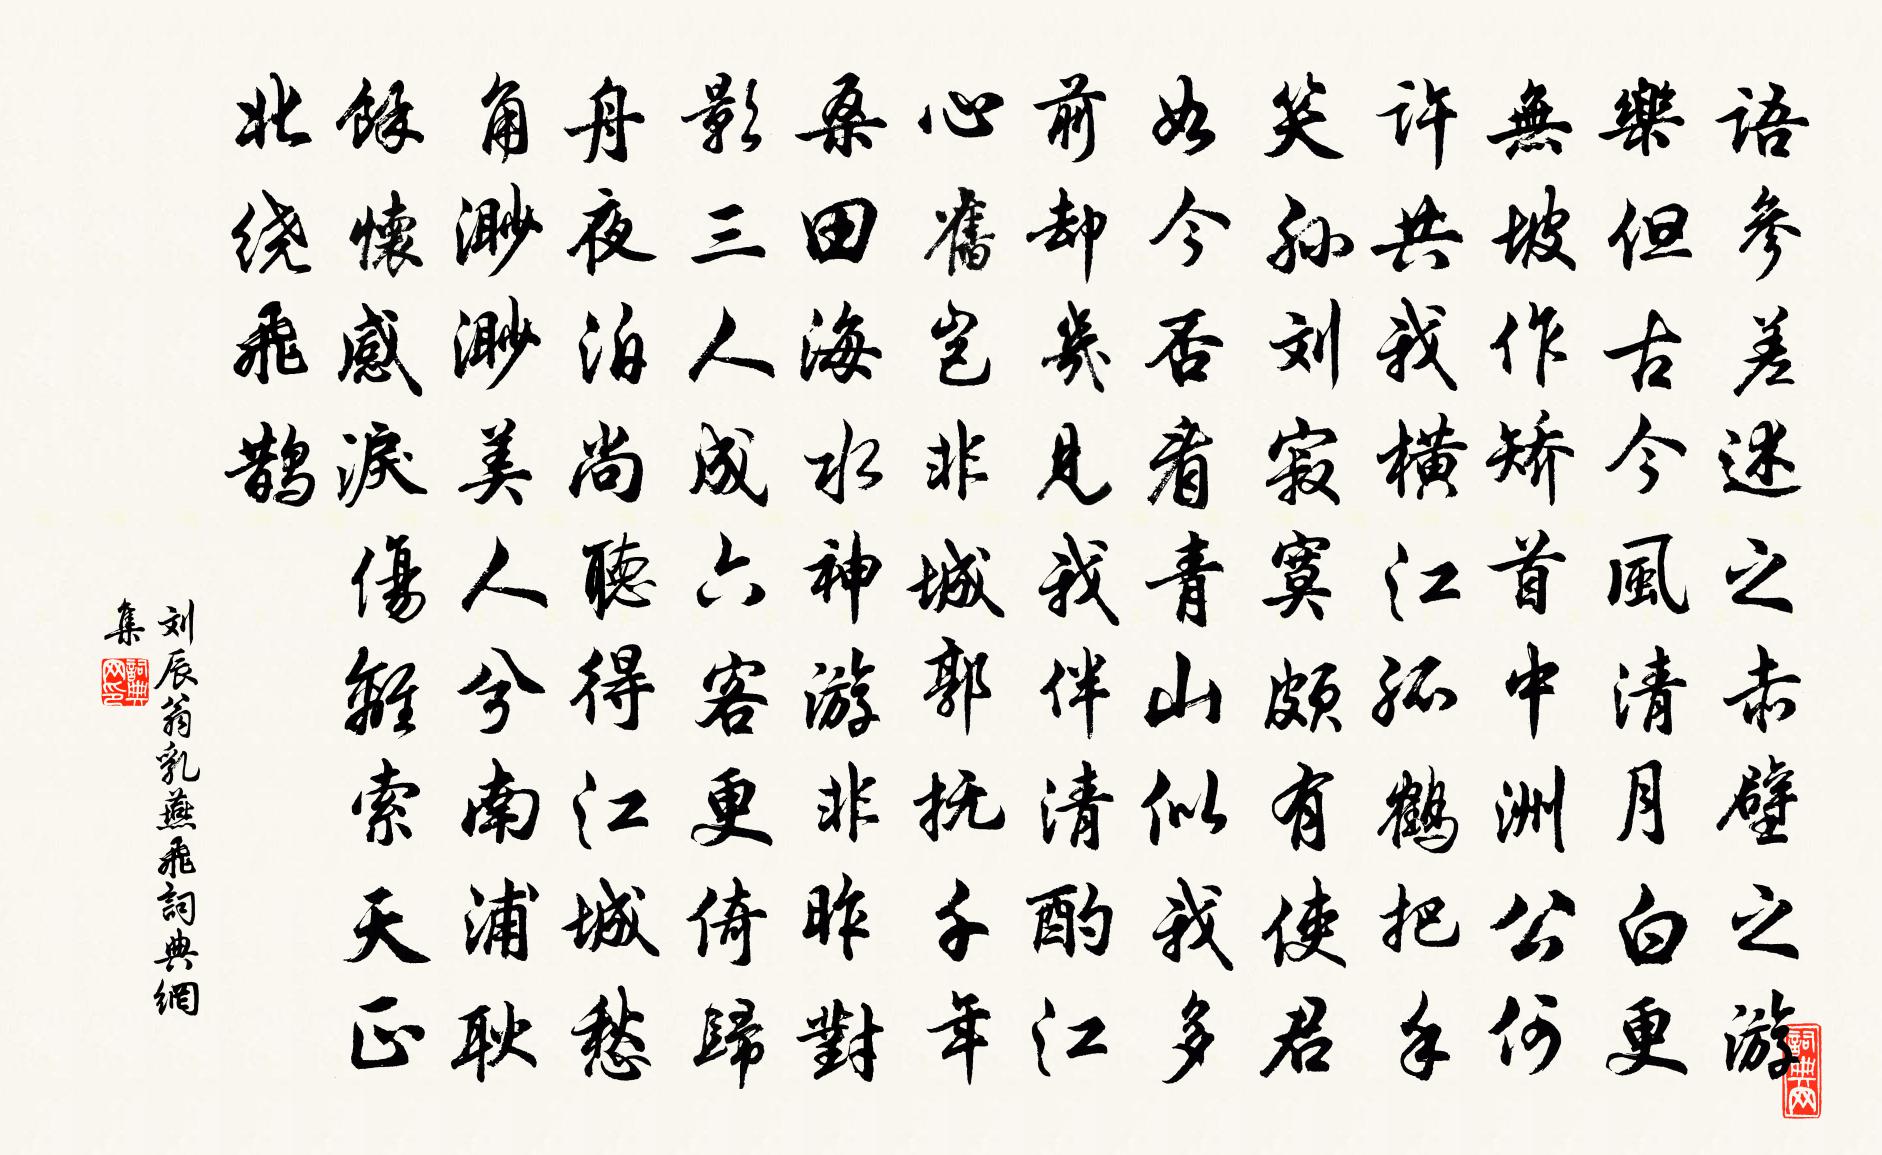 語參差述之赤壁之游
樂但古今風清月白更
無坡作矫首中洲公何
許共我橫江孤鶴把手
笑孙刘寂寞頗有使君
如今否看青山似我多
前却幾見我伴清酌江
心舊岂非城郭抚千年
桑田海水神游非昨對
影三人成六客更倚歸
舟夜泊尚聽得江城愁
角渺渺美人兮南浦耿
餘懷感淚傷離索天正
北绕飛鹊
刘辰翁乳燕飛詞典網
集
詞典网印
詞典网